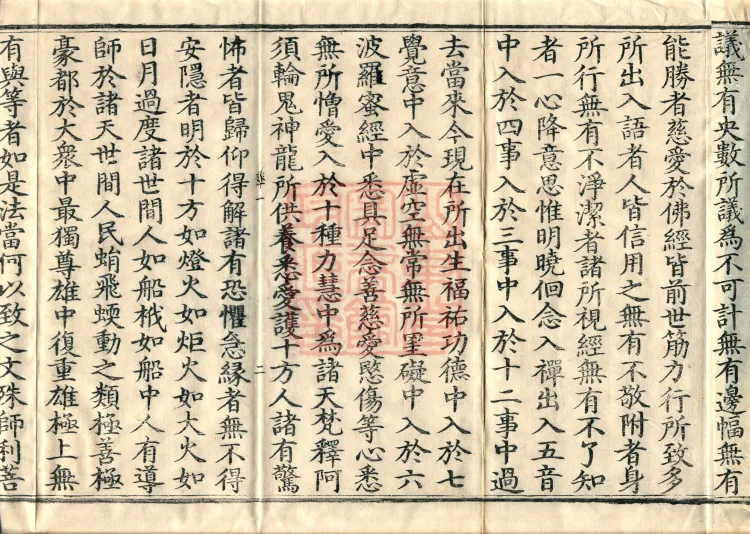 議無有央數所議為不可計無有邊幅無有
能勝者慈愛於佛經皆前世筋力行所致多
所出入語者人皆信用之無有不敬附者身
所行無有不淨潔者諸所視經無有不了知
者一心降意思惟明曉佪念入禪出入五音
中入於四事入於三事中入於十二事中過
去當來今現在所出生福祐功德中入於七
覺意中入於虛空無常無所罣礙中入於六
波羅蜜經中悉具足念善慈愛愍傷等心悉
無所憎愛入於十種力慧中為諸天梵釋阿
須輪鬼神龍所供養悉愛護十方人諸有驚
怖者皆歸仰得解諸有恐懼急緣者無不得
安隱者明於十方如燈火如炬火如大火如
日月過度諸世間人如船栰如船中人有導
師於諸天世間人民蜎飛蝡動之類極善極
豪都於大眾中最獨尊雄中復重雄極上無
有與等者如是法當何以致之文殊師利菩
二